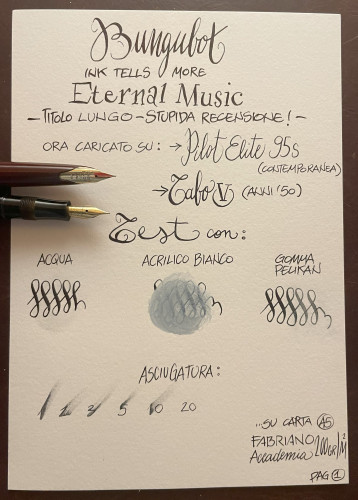 Bungubot
INK TELLS MORE
Eternal Music
- TITOLO LUNGO - STUPIDA RECENSIONE! -
ORA CARICATO SU: → Pilot Elite 95s
(CONTEMPORANEA)
→ Tabo V (ANNI '50)
Test con:
ACQUA ACRILICO BIANCO GOMMA PELIKAN
ASCIUGATURA:
1 2 5 10 20
...SU CARTA A5
FABRIANO
Accademia 200GR/M²
PAG 1